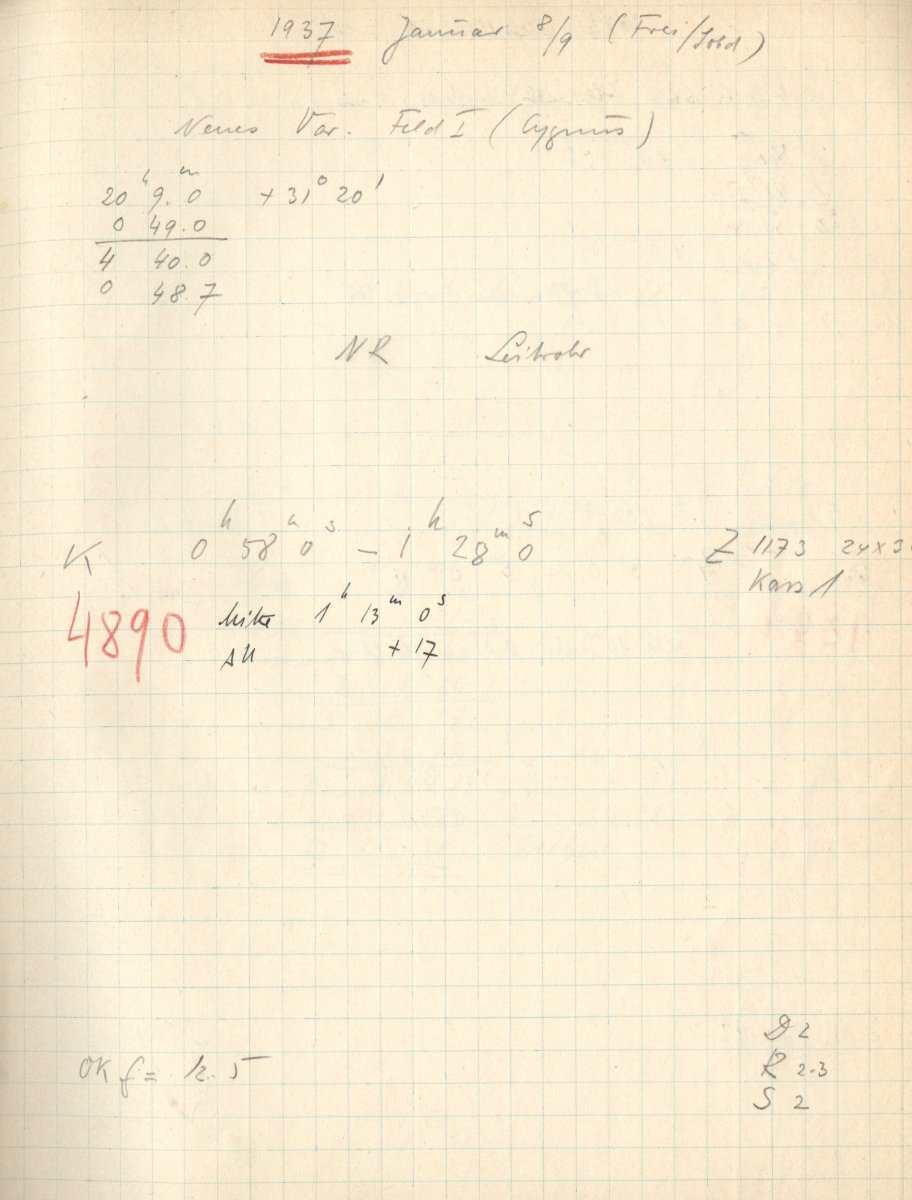 1937 Januar 8/9 (Frei/Sobd)
Neues Var. Feld I (Cygnus)
20ʰ 9.ᵐ0 +31° 20'
0 49.0
4 40.0
0 48.7
NR Leitrohr
K 0ʰ 58ᵐ 0ˢ – 1ʰ 28ᵐ 0ˢ Z 1173 24×3
Kass 1
4890 Mitte 1ʰ 13ᵐ 0ˢ
+17
OK f = 12.5
D 2
R 2-3
S 2